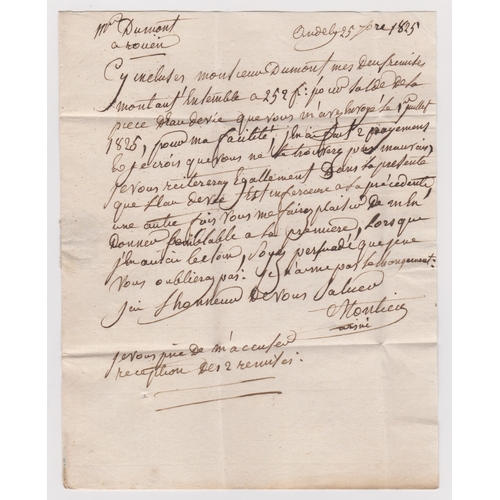 Mr Dumont
a rouen
Andely 25 7bre 1825
Cy incluses monsieur Dumont mes deux remises
montant Ensemble a 252 f. pour solde de la
piece d'eau devie que vous m'avez envoyé le juillet
1825, pour ma facilité, j'en ai fait 2 payemens
et je crois que vous ne le trouverez pas mauvais.
Je vous reitererai Egallement Dans la presente
que l'eau devie est inferieure a la précédente,
une autre fois vous me faires plaisir de m'en
Donner semblable a la premiere, Lorsque
j'en aurai besoin, soyez persuadé que je ne
vous oublierai pas. Je n'aime pas le changement.
J'ai L'honneur De vous saluer
Montier
ainé
je vous prie de m'accuser
reception des 2 remises.